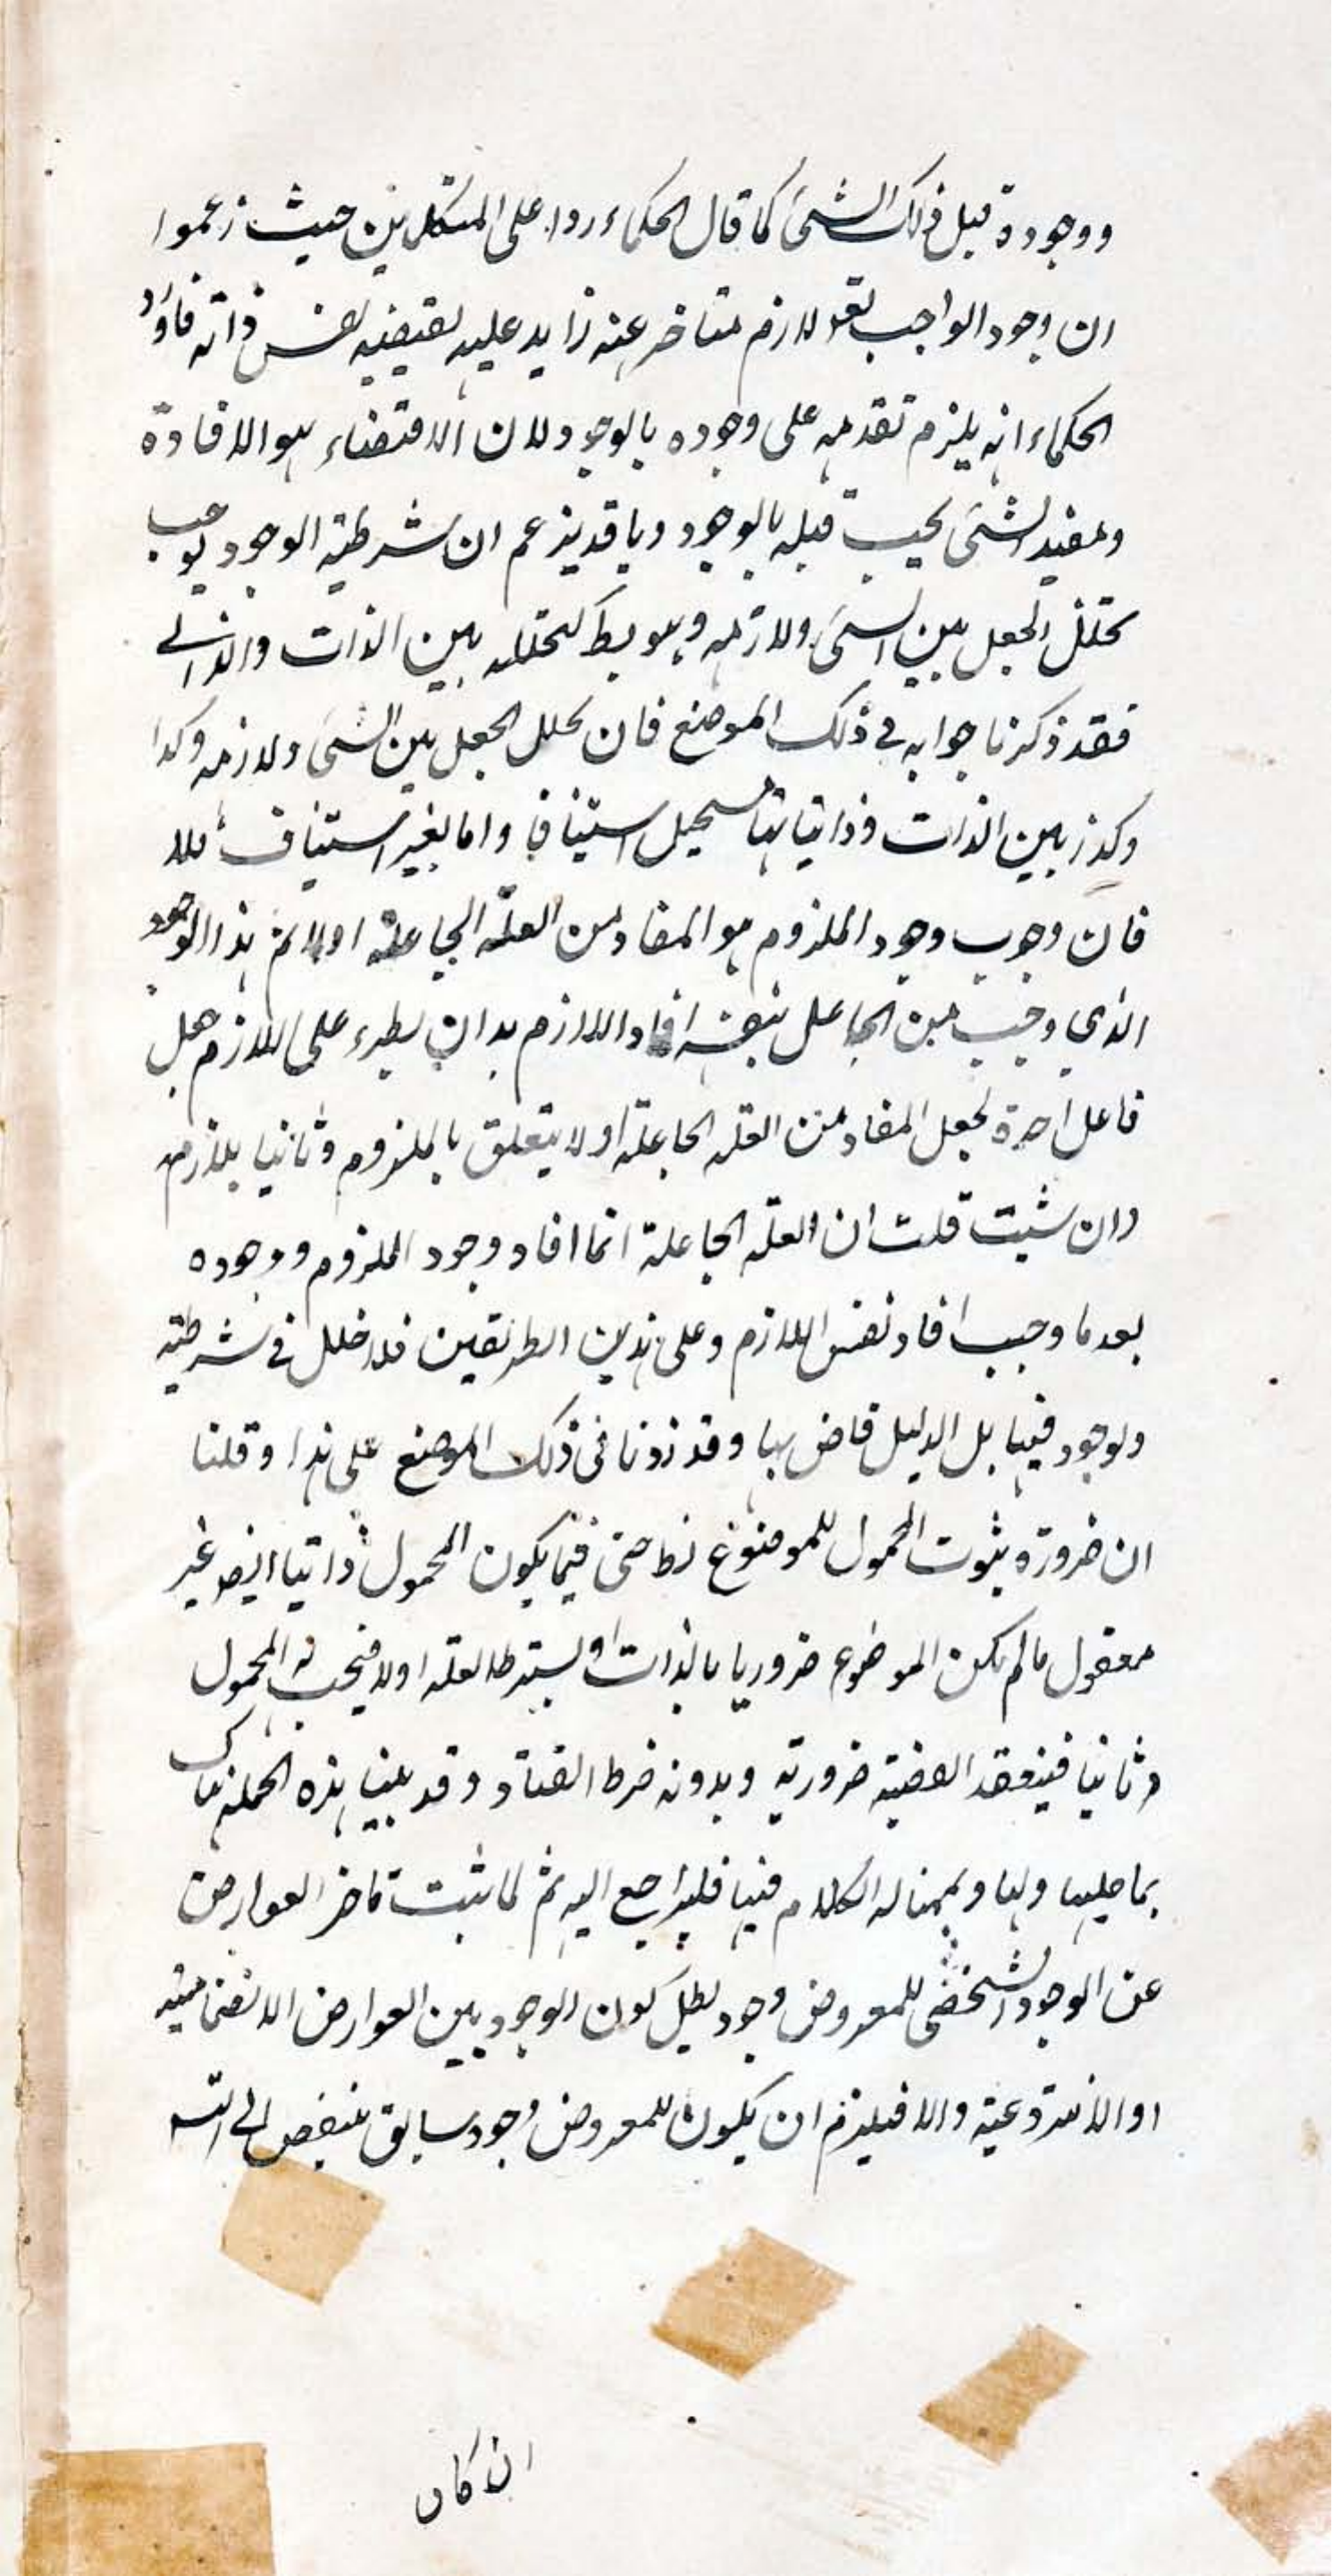 ووجوده قبل ذلك الشئ كما قال الحكماء ردا على المتكلمين حيث زعموا
ان وجود الواجب تعه لازم متاخر عنه زايد عليه يقتضيه نفس ذاته فاورد
الحكماء انه يلزم تقدمه على وجوده بالوجود لان الاقتضاء هو الافادة
ومفيد الشئ يجب قبله بالوجود وما قد يزعم ان شرطية الوجود يوجب
تخلل الجعل بين الشئ ولازمه وهو بط كتخلله بين الذات والذاتي
فقد ذكرنا جوابه في ذلك الموضع فان تخلل الجعل بين الشئ ولازمه وكذا
وكذا بين الذات وذاتياتها يستحيل استينافا واما بغير استيناف فلا
فان وجوب وجود الملزوم هو المفاد من العلة الجاعلة اولا ثم هذا الوجود
الذي وجب من الجاعل بنفسه افاد اللازم بدان يطرء على اللازم جعل
فاعل اخر لجعل المفاد من العلة الجاعلة اولا يتعلق بالملزوم وثانيا بلازمه
وان شيت قلت ان العلة الجاعلة انما افاد وجود الملزوم ووجوده
بعد ما وجب افاد نفس اللازم وعلى هذين الطريقين فلا خلل في شرطية
الوجود فيها بل الدليل قاض بها وقد زدنا في ذلك الموضع على هذا وقلنا
ان ضرورة ثبوت المحمول للموضوع نط حتى فيما يكون المحمول ذاتيا ايضا غير
معقول ما لم يكن الموضوع ضروريا بالذات او بشرط العلة اولا فيجب له المحمول
ثانيا فينعقد القضية ضرورية وبدونه خرط القتاد وقد بينا هذه الجملة هناك
بما عليها ولها وبمناله الكلام فيها فليراجع اليه ثم لما ثبت تاخر العوارض
عن الوجود الشخصي للمعروض وجود بطل كون الوجود بين العوارض الانضمامية
او الانتزاعية والا فيلزم ان يكون للمعروض وجود سابق فننقض الى التسه
ان كان